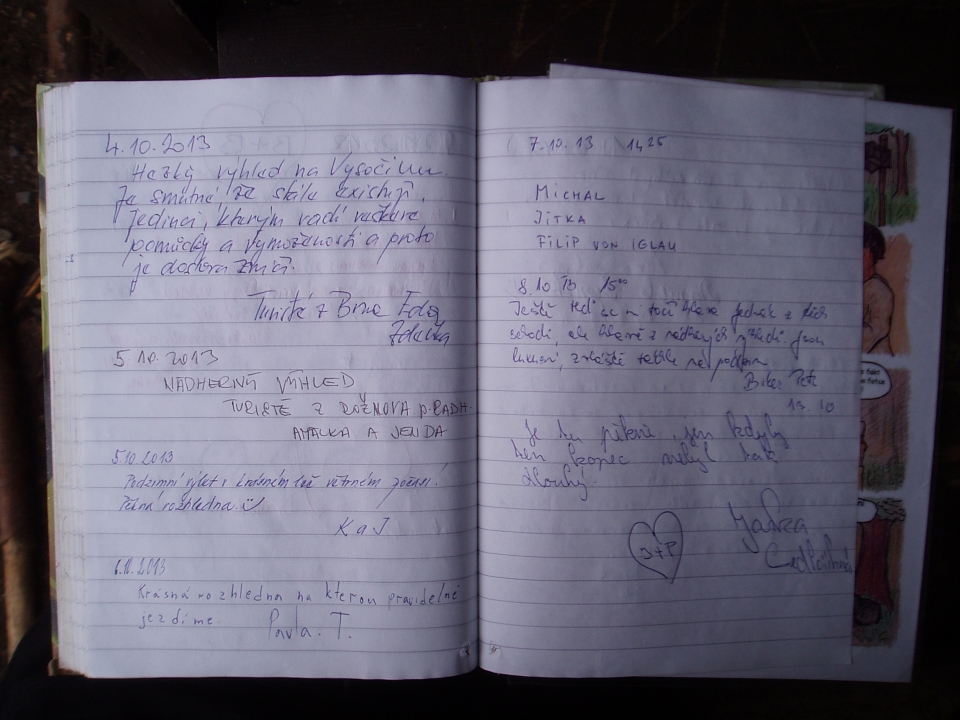 4.10.2013
Hezký výhled na Vysočinu.
Je smutné, že stále existují
jedinci, kterým vadí
pomůcky a vymoženosti a proto
je
Turisté z Brna Eda
Zdeňka
5.10.2013
NÁDHERNÝ VÝHLED
TURISTÉ Z ROŽNOVA p. RADH.
AMÁLKA A JENDA
5.10.2013
Podzimní výlet v krásném leč větrném počasí!
Pěkná rozhledna.
K a J
6.10.2013
Krásná rozhledna na kterou pravidelně
jezdíme. Pavla. T.
7.10.13 14 25
MICHAL
JITKA
FILIP VON IGLAU
8.10. 15 00
Ještě teď se mi točí hlava jednak z
schodů, ale hlavně z nádherných výhledů. Jsou
luxusní, zvláště takhle na podzim
Petr
13 10
Je tu pěkně, jen kdyby
ten kopec nebyl tak
dlouhý.
J+P